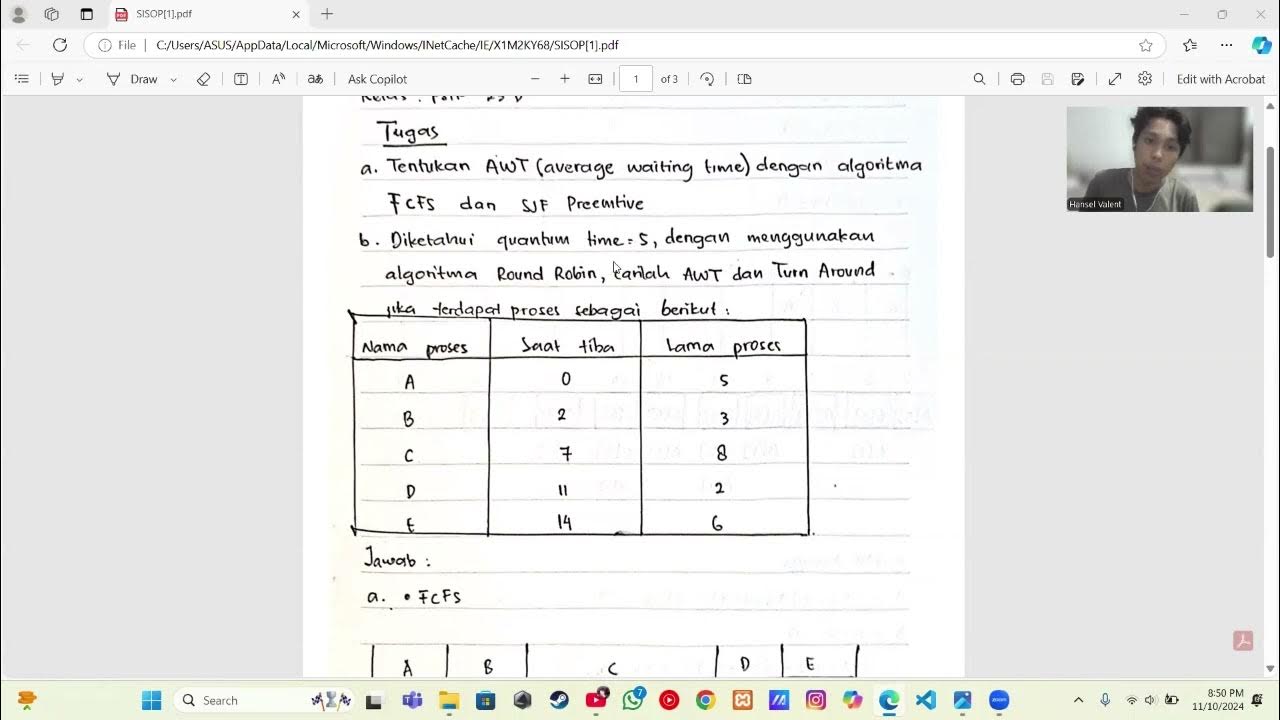 SISOP[1].pdf
File
C:/Users/ASUS/AppData/Local/Microsoft/Windows/INetCache/IE/X1M2KY68/SISOP[1].pdf
Draw
Ask Copilot
1 of 3
Edit with Acrobat
Tugas
a. Tentukan AWT (average waiting time) dengan algoritma
FCFS dan SJF Preemtive
b. Diketahui quantum time = 5, dengan menggunakan
algoritma Round Robin, carilah AWT dan Turn Around
jika terdapat proses sebagai berikut :
Nama proses Saat tiba Lama proses
A 0 5
B 2 3
C 7 8
D 11 2
E 14 6
Jawab :
a. • FCFS
A B C D E
Hansel Valent
Search
7
zoom
8:50 PM
11/10/2024